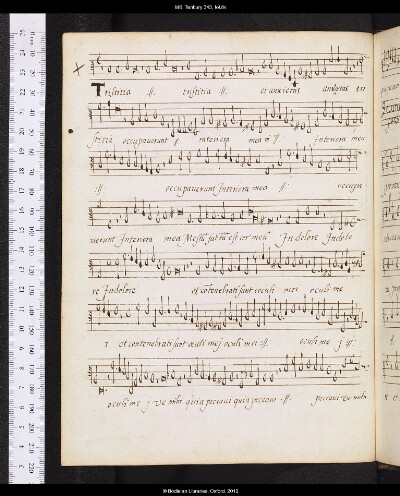 MS. Tenbury 343, fol.8v
Tristitia :||: tristitia :||: et anxietas anxietas
stitia occupaverunt interiora mea :||: Interiora mea
:||: occupaverunt Interiora mea :||: occupa
verunt Interiora mea Mestu fact est cor meu In dolore In dolo
re In dolore et contenebrati sunt oculi mei oculi me
i et contenebrati sunt oculi mej oculi mei :||: oculi me j :||:
oculi me j ve mihi quia peccavi quia peccavi :||: peccavi ve mihi
© Bodleian Libraries, Oxford, 2012